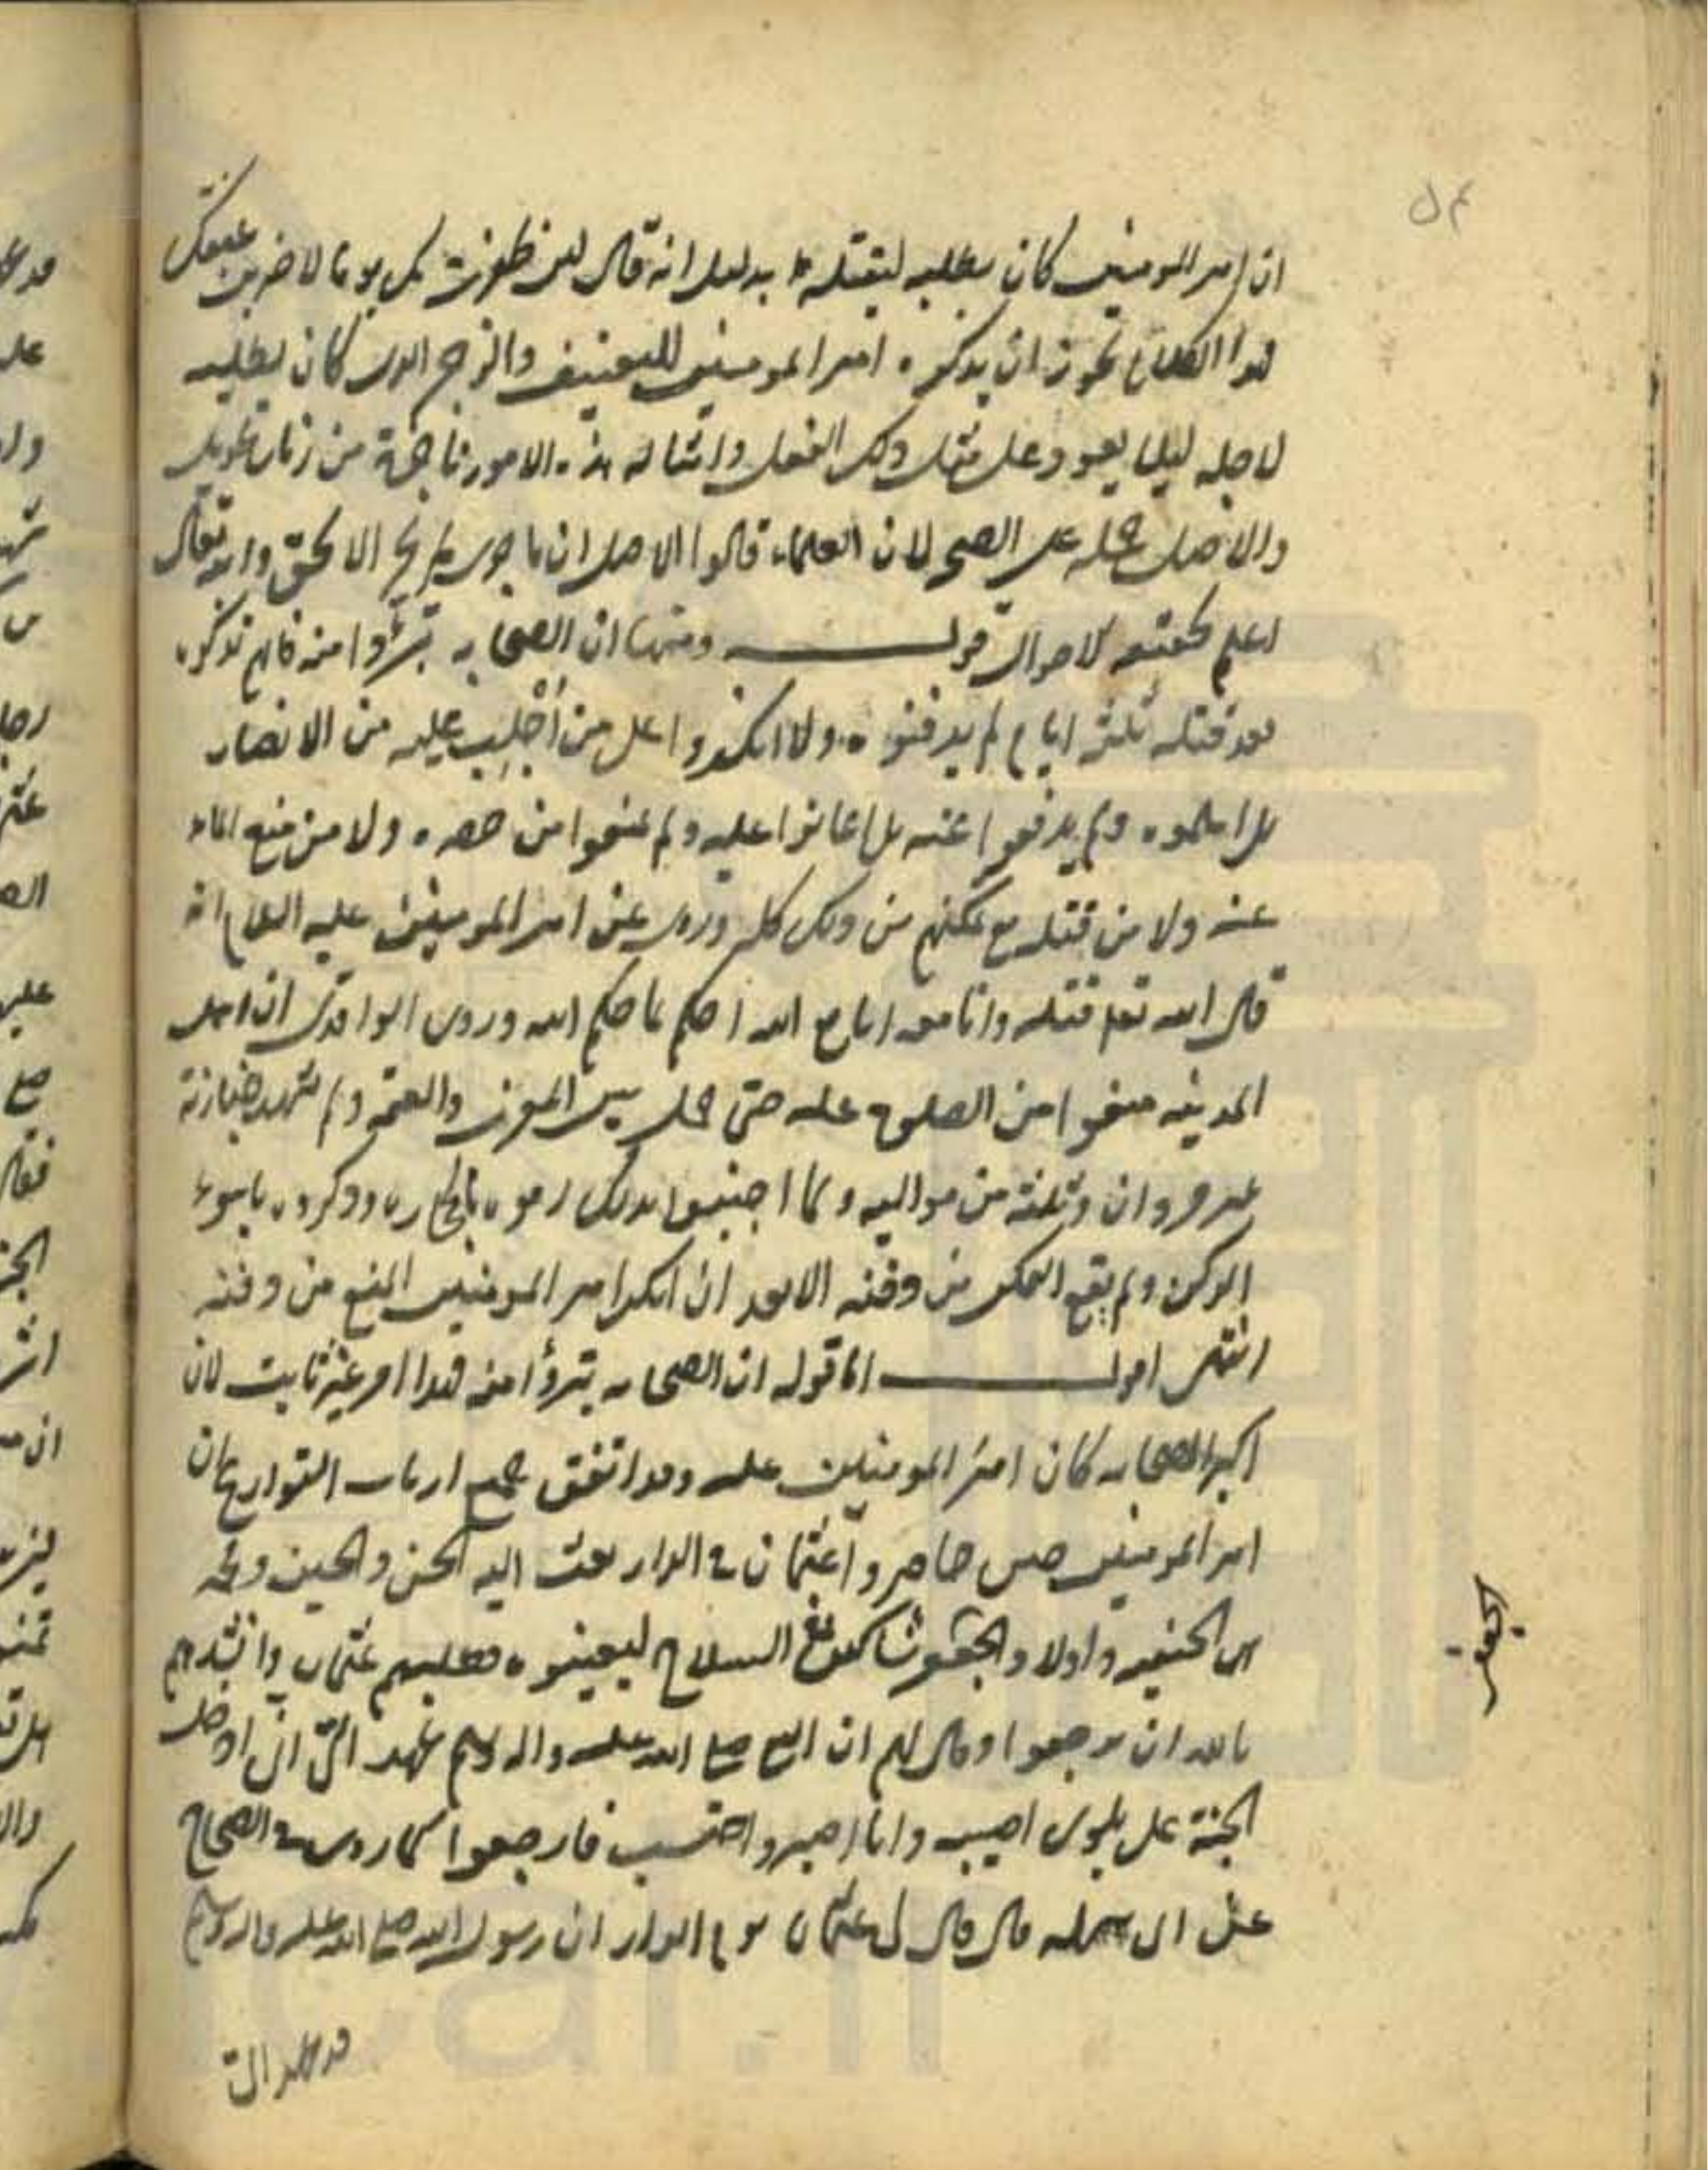 ان امير المومنين كان يطلبه ليقتله بدليل انه قال لئن ظفرت بك يوما لاضربن عنقك
فهذا الكلام يجوز ان يذكره امير المومنين للتعنيف والزجر الذى كان يطلبه
لاجله ليلا يعود وعلى مثل ذلك الفعل وامثاله هذه الامور من زمان طويل
والاصل حمله على الصحه لان العلماء قالوا الاصل ان ما جرى الا بحق والله تعالى
اعلم بحقيقه الاحوال قوله ومنها ان الصحابه تبرؤا منه فانهم تركوه
بعد قتله ثلثه ايام لم يدفنوه ولا انكروا على من اجلب عليه من الانصار
بل اسلموه ولم يدفعوا عنه بل اعانوا عليه ولم يمنعوا من حصره ولا من منع الماء
عنه ولا من قتله مع تمكنهم من ذلك كله وروى عن امير المومنين عليه السلام انه
قال الله تعالى قتله وانا معه احكم حكم الله وروى الواقدى ان اهل
المدينه منعوا من الصلوة عليه حتى حمل بين المغرب والعتمه ولم تشهد جنازته
غير مروان وثلثة من مواليه ولما بذلك رموه بالحجاره وذكروه باسوء
الذكر ولم يقع التمكن من دفنه الا بعد ان انكر امير المومنين المنع من دفنه
انتهى اقول اما قوله ان الصحابه تبرؤا منه فهذا امر غير ثابت لان
اكبر الصحابه كان امير المومنين على وقد اتفق جميع ارباب التواريخ ان
امير المومنين حين حاصروا عثمان فى الدار بعث اليه الحسن والحسين ومحمد
بن الحنفيه واولاد الجعفر شاكين السلاح ليعينوه عثمان وانشدهم
بالله ان يرجعوا وقال لهم ان النبى صلى الله عليه واله وسلم عهد الىّ انى ادخل
الجنة على بلوى اصيبه وانا اصبر واحتسب فارجعوا كما روى فى الصحاح
عن ابى سهله قال قال لى عثمان يوم الدار ان رسول الله صلى الله عليه واله وسلم
قد عهد الىّ